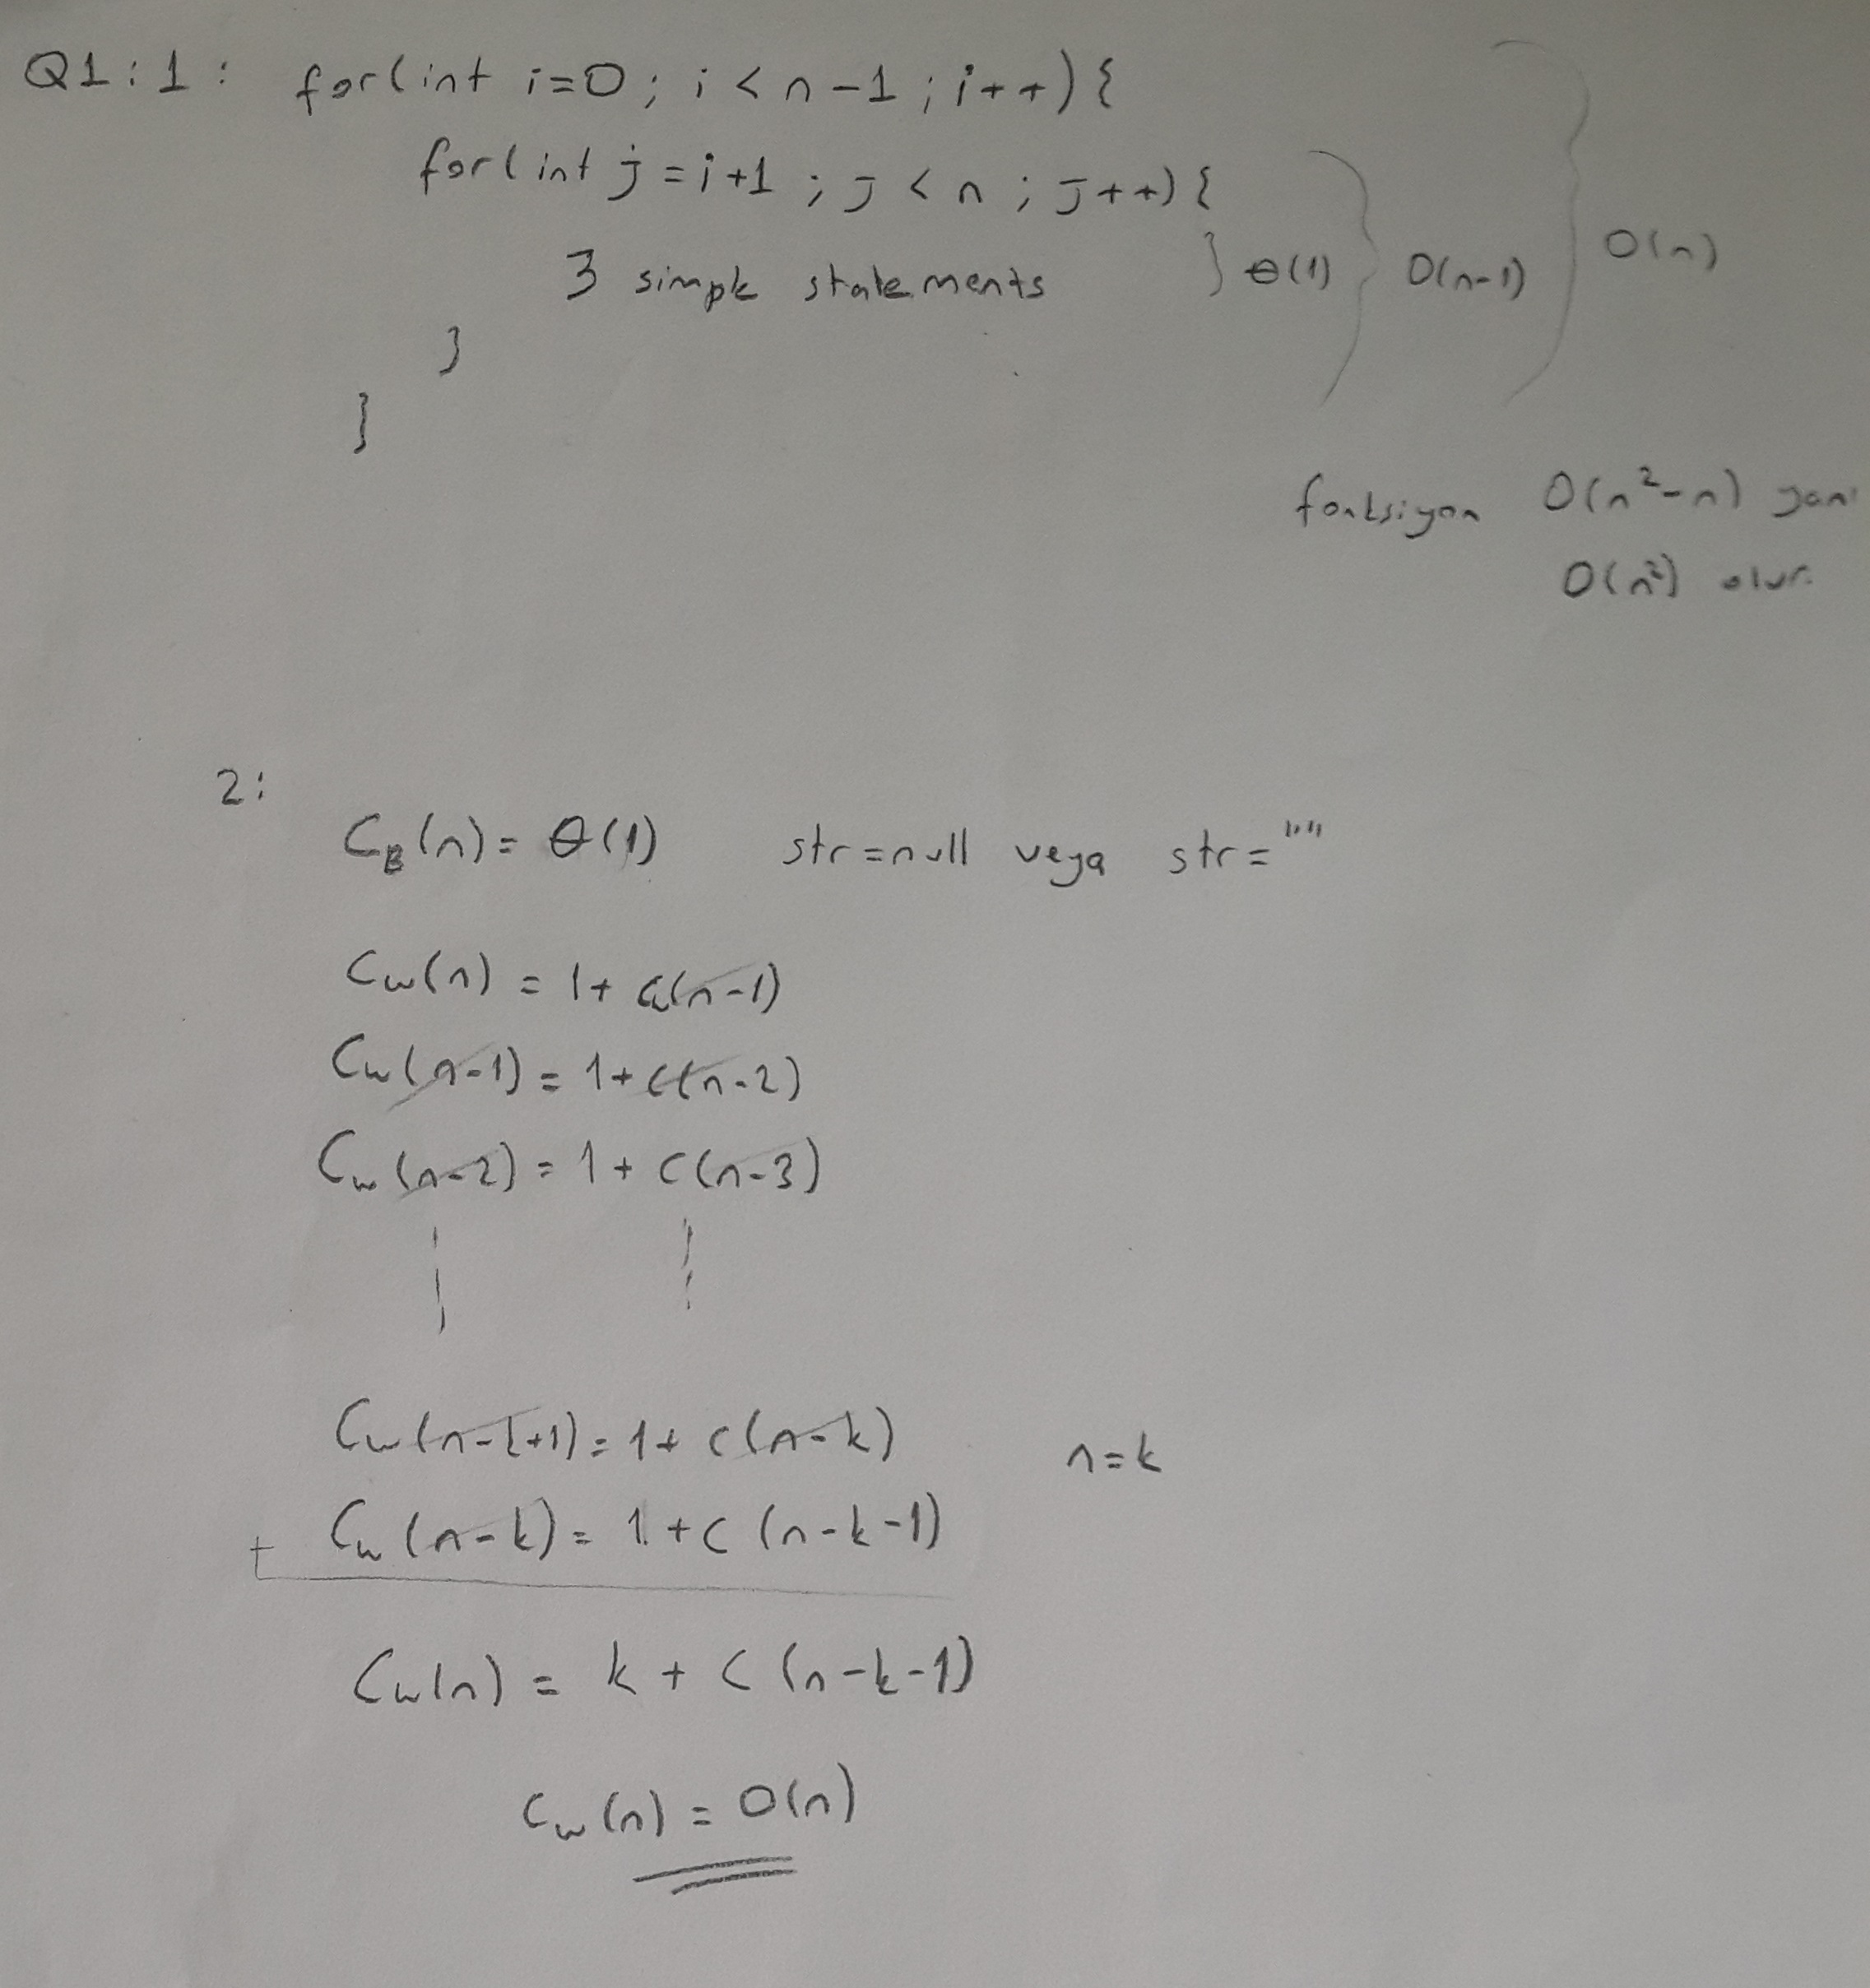 Q1:1: for(int i=0; i<n-1; i++){
for(int j=i+1; j<n; j++){
3 simple statements } θ(1) } O(n-1) } O(n)
}
}
fonksiyon O(n²-n) yani
O(n²) olur.
2:
C_B(n) = θ(1) str=null veya str=""
C_w(n) = 1+ C_w(n-1)
C_w(n-1) = 1+C(n-2)
C_w(n-2) = 1+ C(n-3)
C_w(n-k+1) = 1+ C(n-k) n=k
+ C_w(n-k) = 1+C(n-k-1)
C_w(n) = k + C(n-k-1)
C_w(n) = O(n)